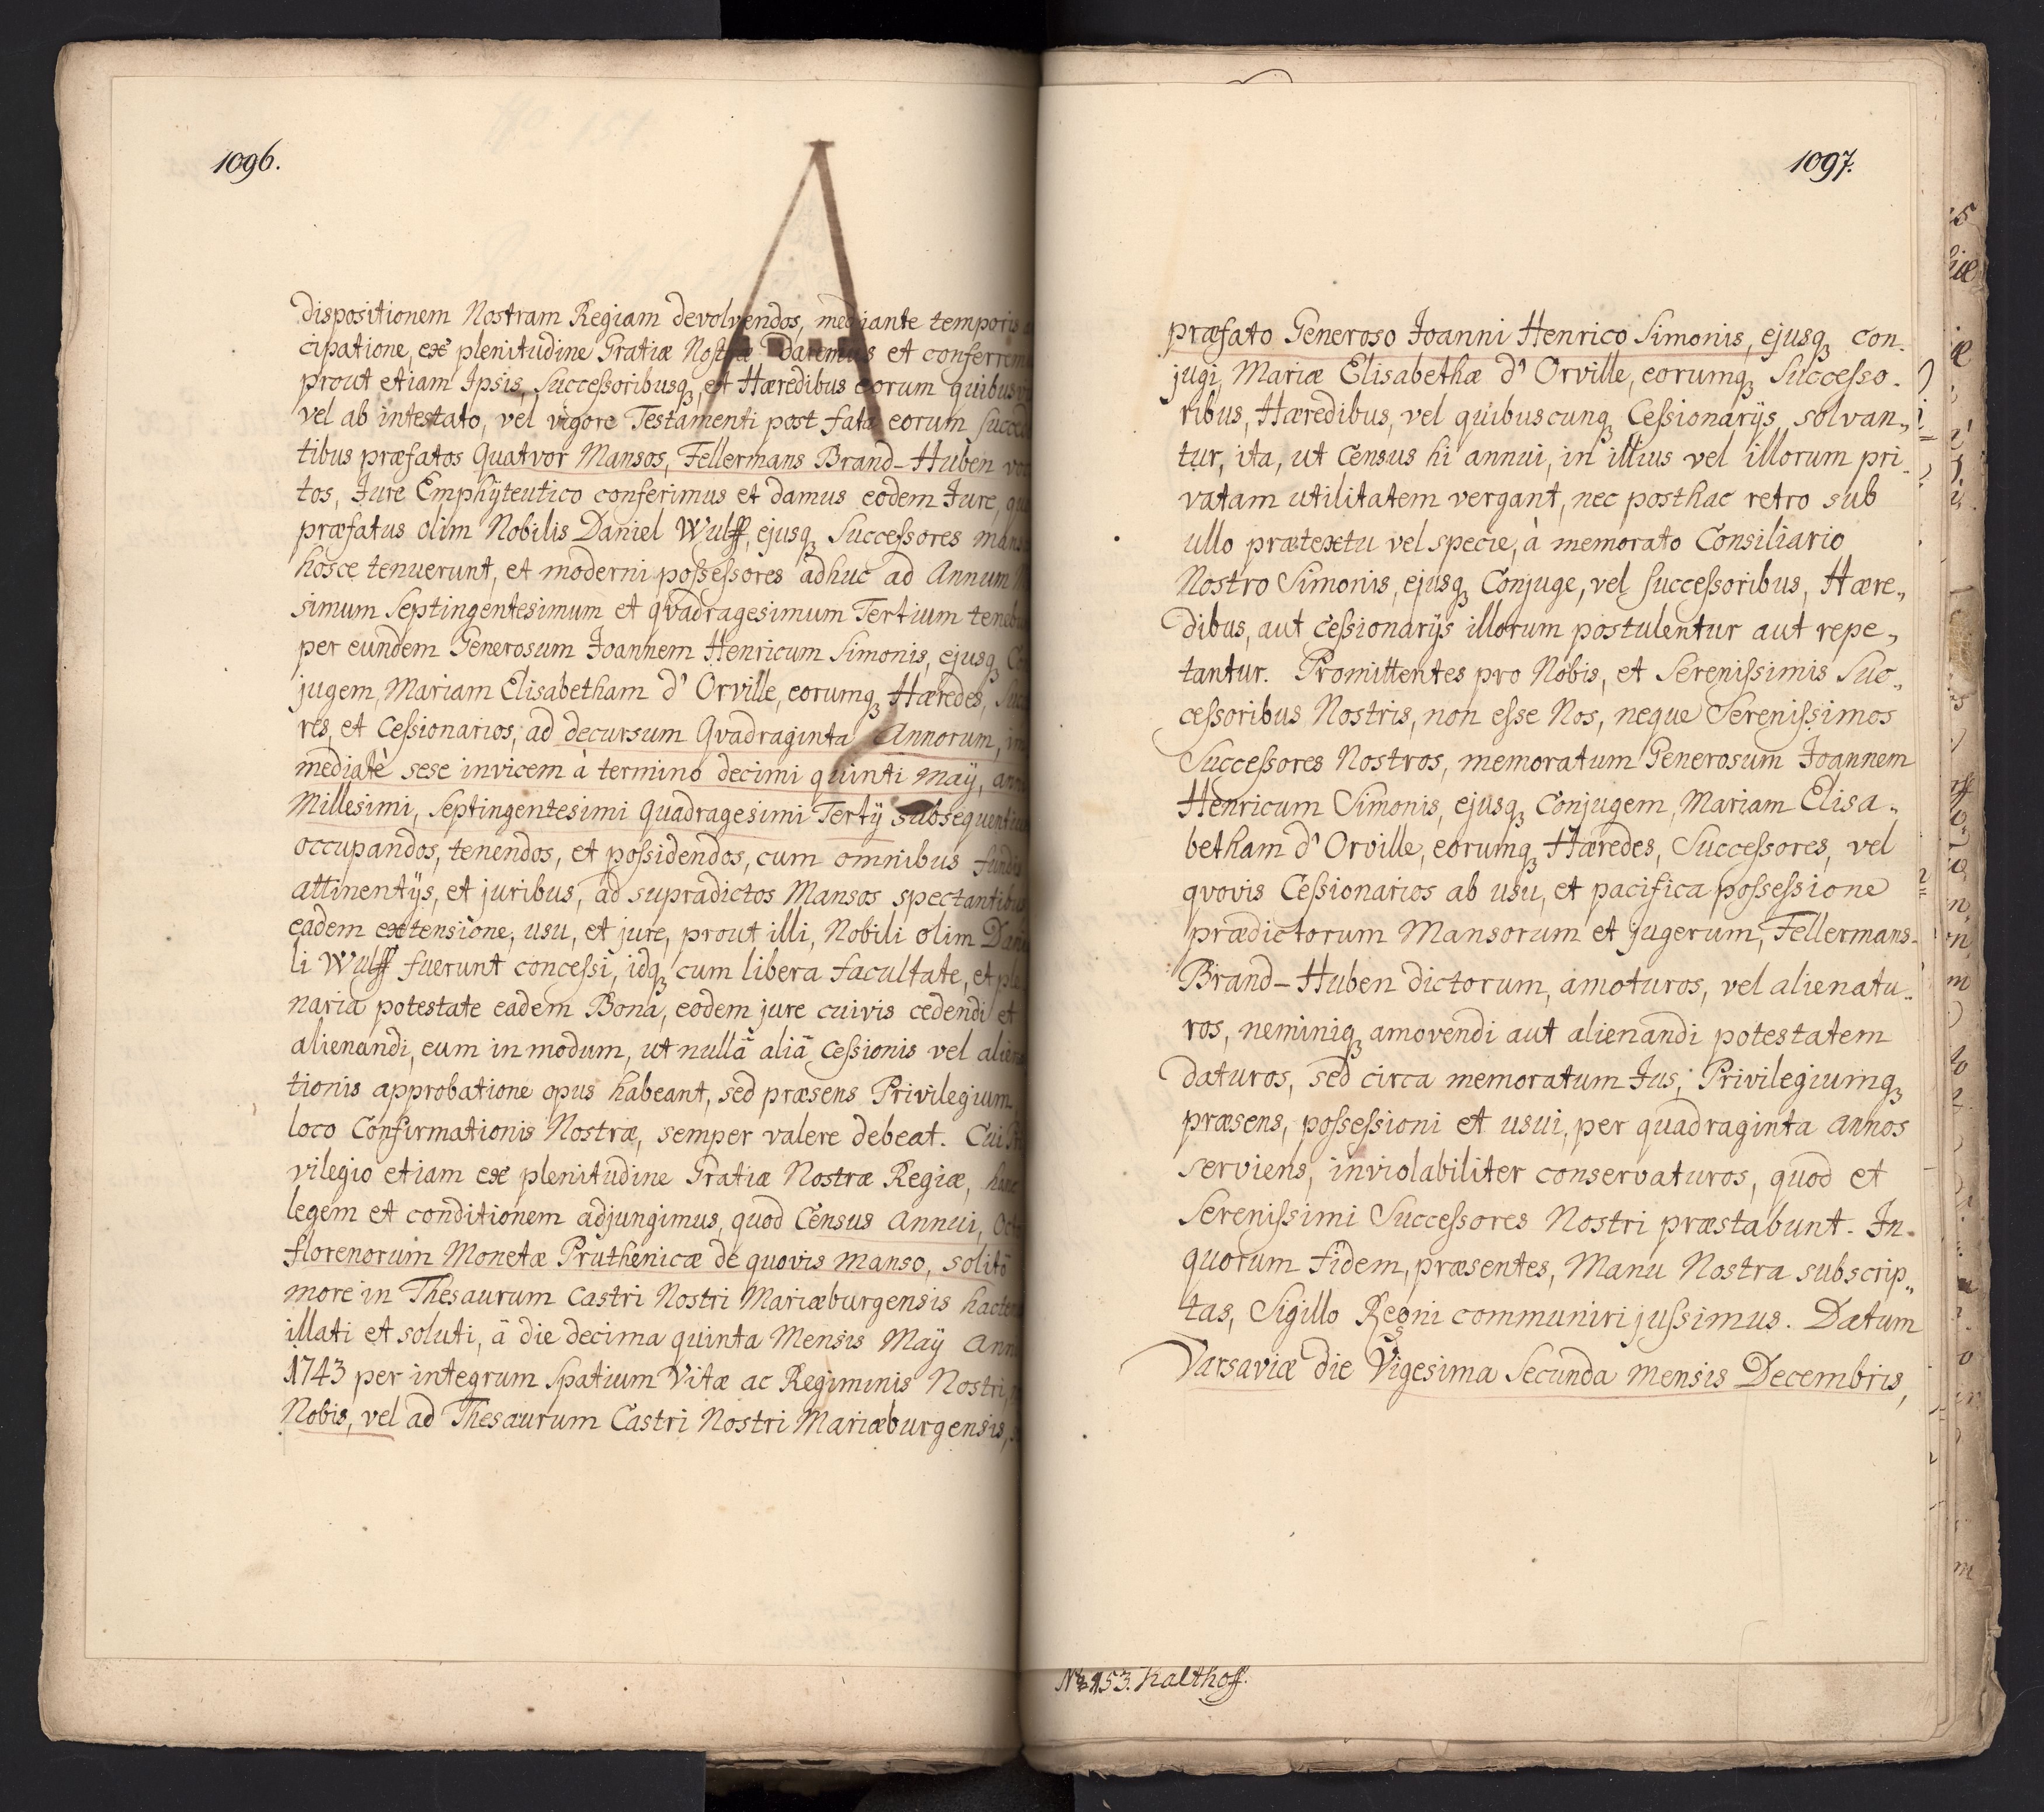 1096.
dispositionem Nostram Regiam devolvendos, mediante temporis
cipatione, ex plenitudine Gratiæ Nostræ daremus et conferrem
prout etiam Ipsis, Successoribusq, et Hæredibus eorum quibusv
vel ab intestato, vel vigore Testamenti post fata eorum succed
tibus præfatos Quatvor Mansos, Fellermans Brand-Huben vo
tos, Jure Emphyteutico conferimus et damus eodem Jure,
præfatus olim Nobilis Daniel Wulff, ejusq Successores mans
hosce tenuerunt, et moderni possessores adhuc ad Annum
simum Septingentesimum et qvadragesimum Tertium teneb
per eundem Generosum Joannem Henricum Simonis, ejusq
jugem, Mariam Elisabetham d'Orville, eorumq Hæredes,
res, et Cessionarios, ad decursum Qvadraginta Annorum,
mediatè sese invicem à termino decimi quinti Maÿ,
Millesimi, Septingentesimi Quadragesimi Tertÿ subsequenti
occupandos, tenendos, et possidendos, cum omnibus fundis
attinentÿs, et juribus, ad supradictos Mansos spectantibus
eadem extensione, usu, et jure, prout illi, Nobili olim Dani
li Wulff fuerunt concessi, idq cum libera facultate, et ple
naria potestate eadem Bona, eodem jure cuivis cedendi et
alienandi, eum in modum, ut nullâ aliâ Cessionis vel aliena
tionis approbatione opus habeant, sed præsens Privilegium
loco Confirmationis Nostræ, semper valere debeat. Cui
vilegio etiam ex plenitudine Gratiæ Nostræ Regiæ, hanc
legem et conditionem adjungimus, quod Census Annui, Oct
florenorum Monetæ Pruthenicæ de quovis manso, solitô
more in Thesaurum Castri Nostri Mariæburgensis hacten
illati et soluti, â die decima quinta Mensis Maÿ Ann
1743 per integrum spatium Vitæ ac Regiminis Nostri,
Nobis, vel ad Thesaurum Castri Nostri Mariæburgensis,
1097.
præfato Generoso Joanni Henrico Simonis, ejusq Con-
jugi, Mariæ Elisabethæ d'Orville, eorumq Successo-
ribus, Hæredibus, vel quibuscunq Cessionarÿs, solvan„
tur, ita, ut Census hi annui, in illius vel illorum pri-
vatam utilitatem vergant, nec posthac retro sub
ullo prætextu vel specie, à memorato Consiliario
Nostro Simonis, ejusq Conjuge, vel Successoribus, Hære„
dibus, aut Cessionarÿs illorum postulentur aut repe„
tantur. Promittentes pro Nobis, et Serenissimis Suc„
cessoribus Nostris, non esse Nos, neque Serenissimos
Successores Nostros, memoratum Generosum Joannem
Henricum Simonis, ejusq Conjugem, Mariam Elisa„
betham d'Orville, eorumq Hæredes, Successores, vel
qvovis Cessionarios ab usu, et pacifica possessione
prædictorum Mansorum et jugerum, Fellermans-
Brand-Huben dictorum, amoturos, vel alienatu„
ros, neminiq amovendi aut alienandi potestatem
daturos, sed circa memoratum Jus, Privilegiumq
præsens, possessioni et usui, per quadraginta annos
serviens, inviolabiliter conservaturos, quod et
Serenissimi Successores Nostri præstabunt. In-
quorum fidem, præsentes, Manu Nostra subscrip„
tas, Sigillo Regni communiri jussimus. Datum
Varsaviæ die Vigesima Secunda Mensis Decembris,
No 153. Kalthoff.